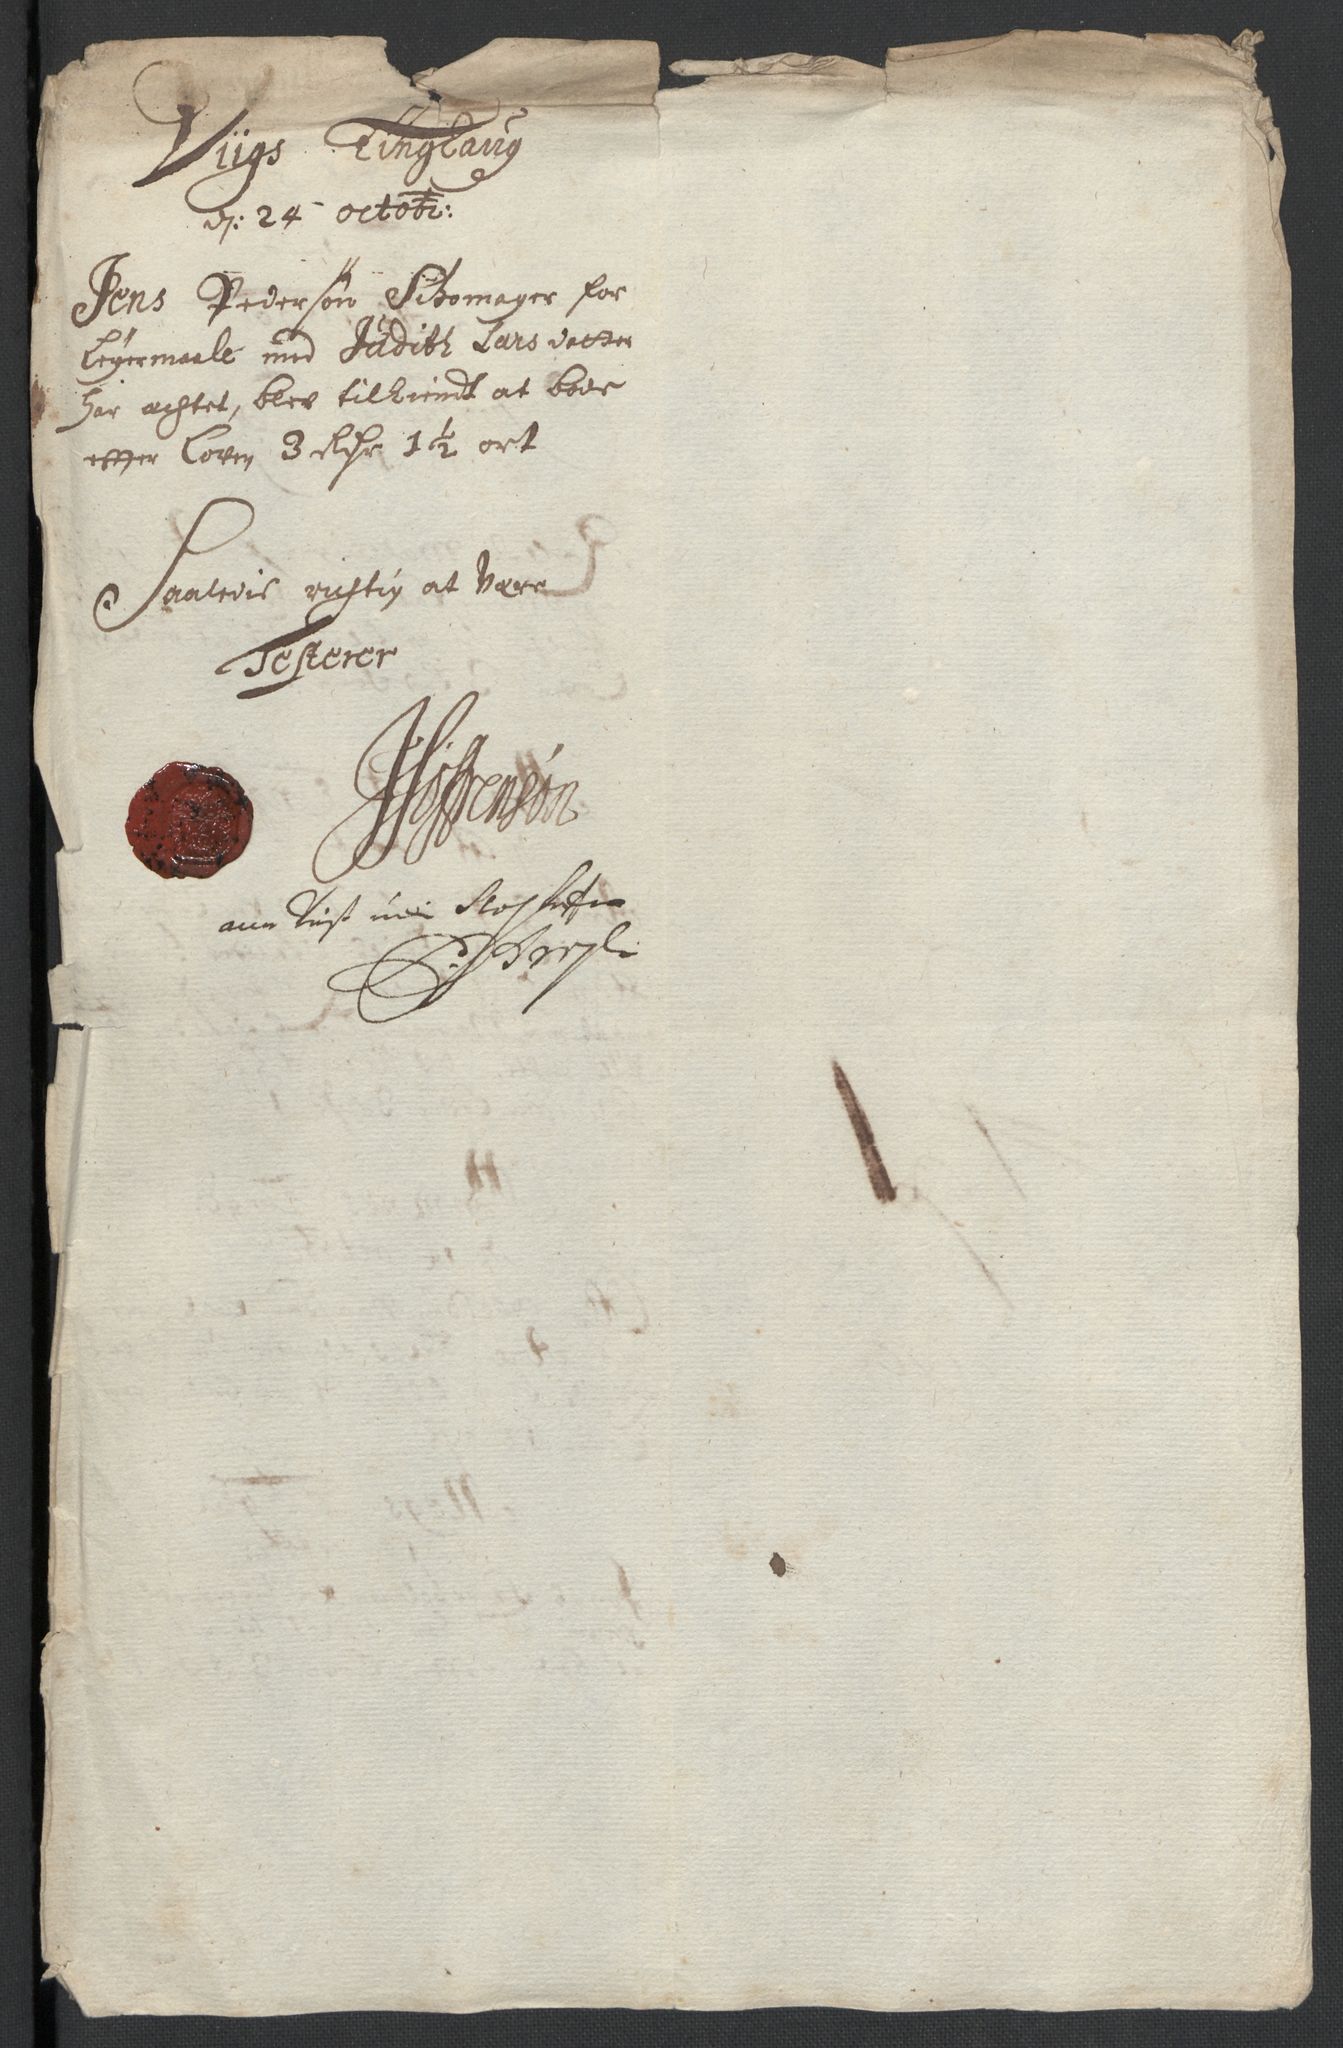 Viigs Tinglaug
d: 24 octobr:
Jens Pedersøn Skomager for
Leyermaale med Judith Larsdatter
har achtet, blev tilkiendt at bøde
efter Loven 3 Rdr 1½ ort
Saaledis richtig at Være
Testerer